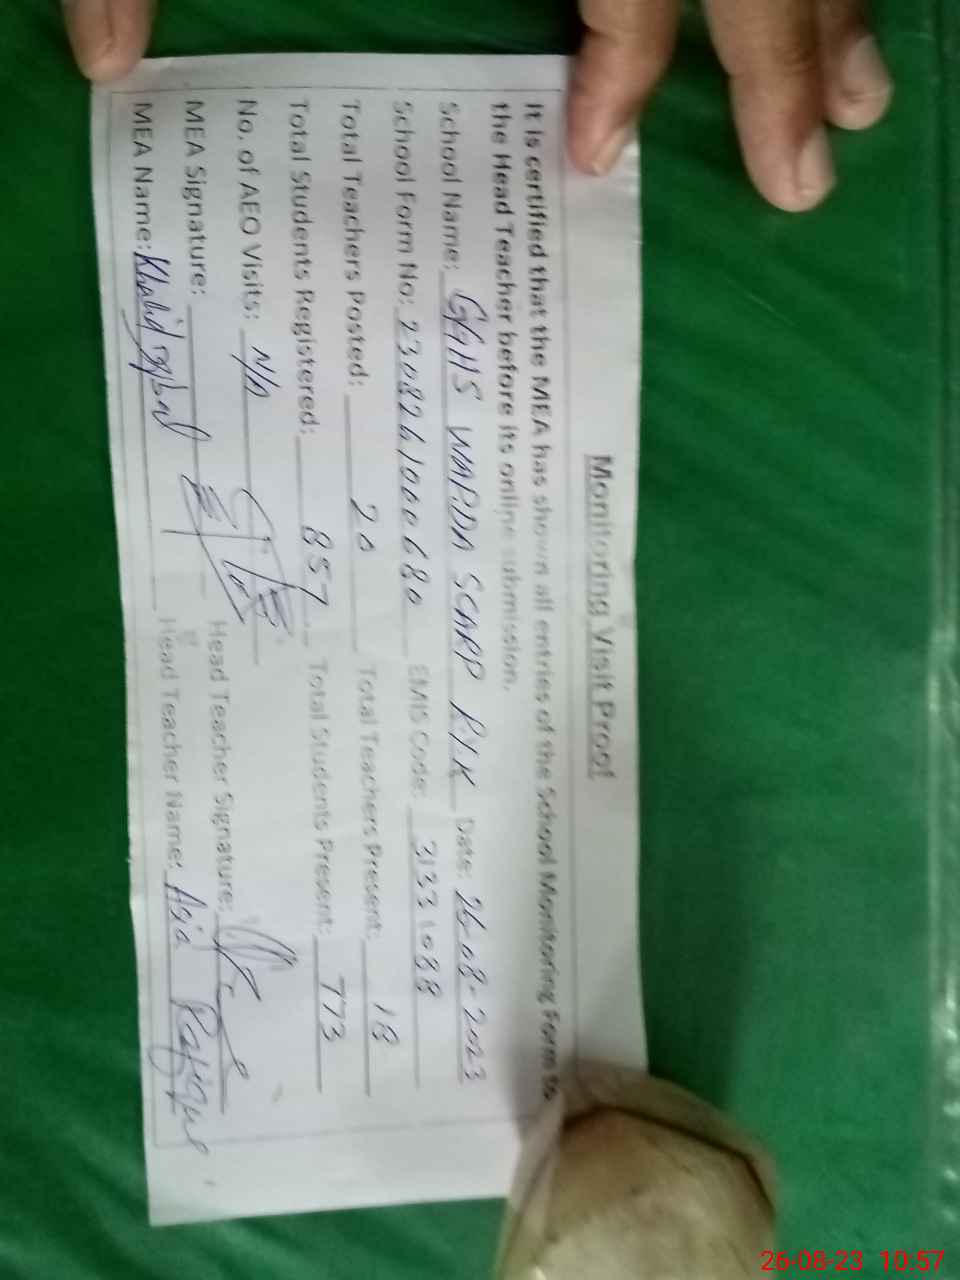 Monitoring Visit Proof
It is certified that the MEA has shown all entries of the School Monitoring Form to
the Head Teacher before its online submission.
School Name: GGHS WAPDA SCARP RYK Date: 26-08-2023
School Form No: 2308261000680 EMIS Code: 31331088
Total Teachers Posted: 20 Total Teachers Present: 18
Total Students Registered: 857 Total Students Present: 773
No. of AEO Visits: N/A
MEA Signature: Head Teacher Signature:
MEA Name: Khalid Iqbal Head Teacher Name: Asia Rafique
26-08-23 10:57